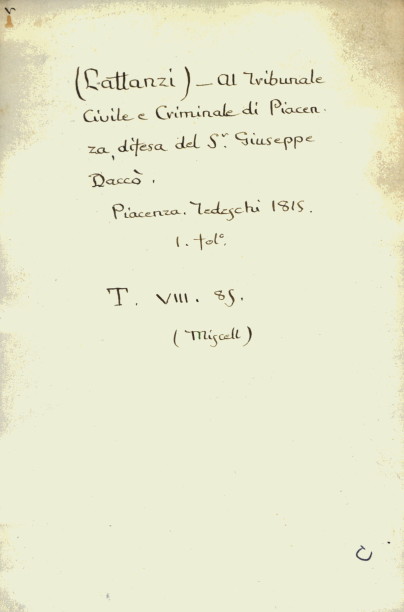 (Lattanzi) — Al Tribunale
Civile e Criminale di Piacen-
za, difesa del Sr. Giuseppe
Daccò.
Piacenza. Tedeschi 1815.
1. folo.
T. VIII. 85.
(Miscell)